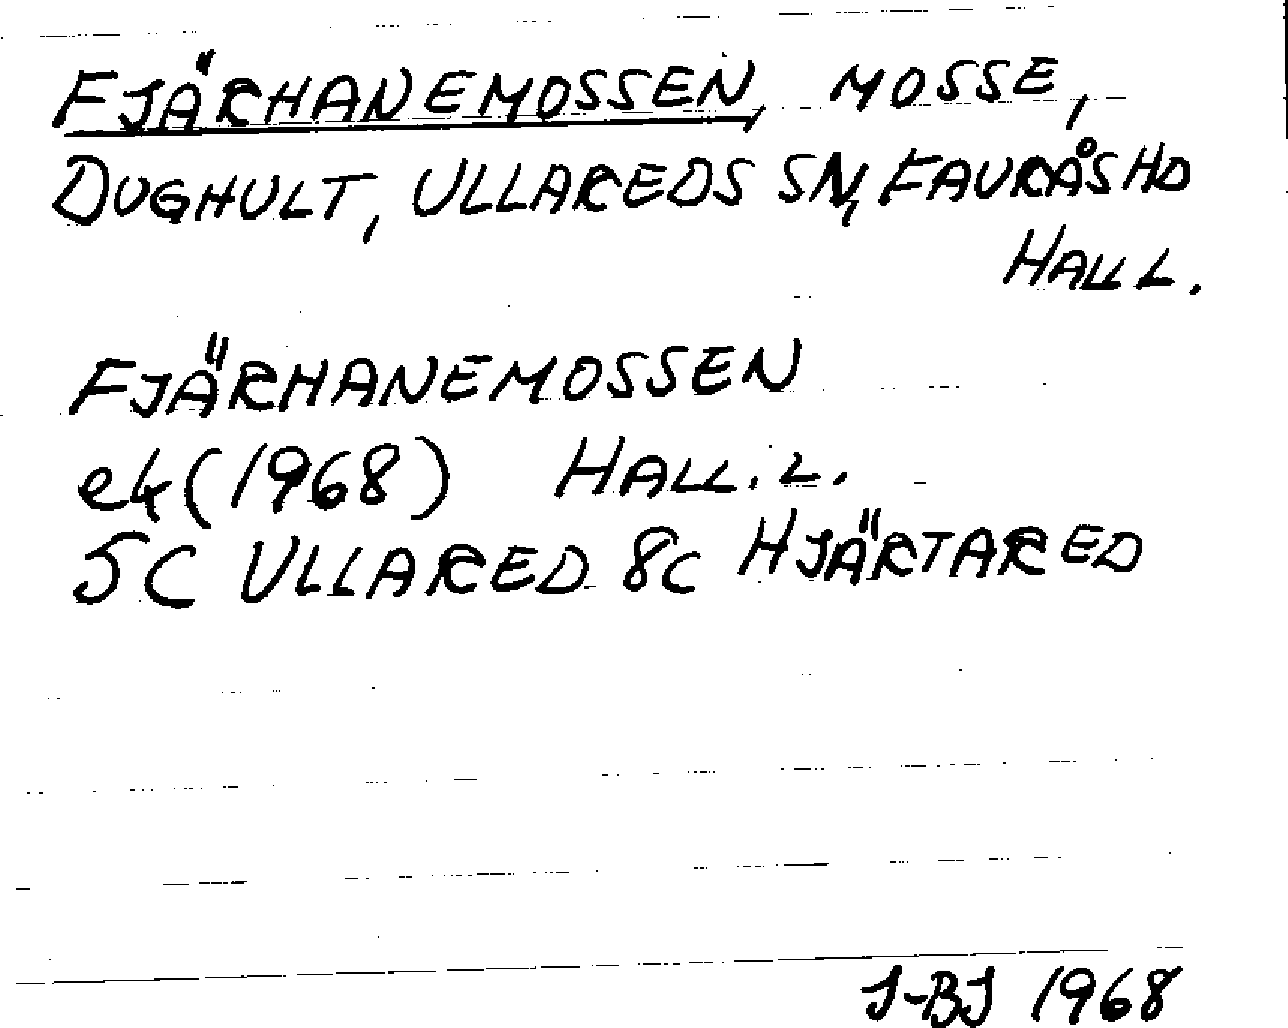 FJÄRHANEMOSSEN, MOSSE,
DUGHULT, ULLAREDS SN, FAURÅSHD
HALL.
FJÄRHANEMOSSEN
ek (1968) HALL. L.
5C ULLARED 8C HJÄRTARED
J-BJ 1968